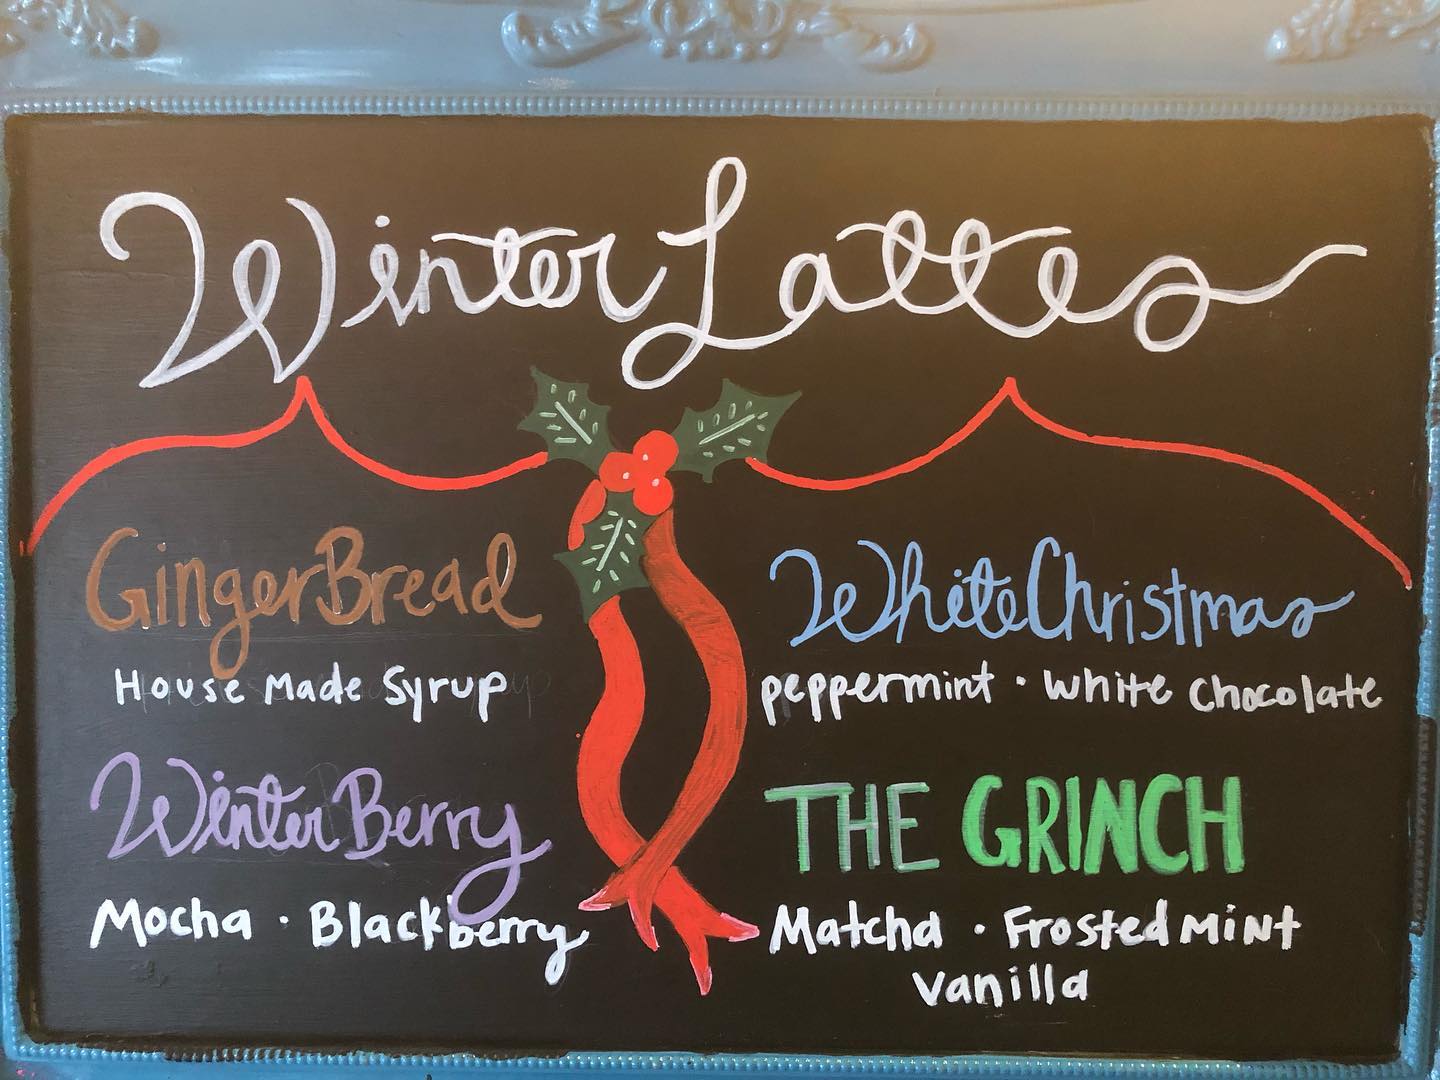 Winter Lattes
GingerBread
House Made Syrup
White Christmas
peppermint · white chocolate
Winter Berry
Mocha · Blackberry
THE GRINCH
Matcha · Frosted Mint
vanilla